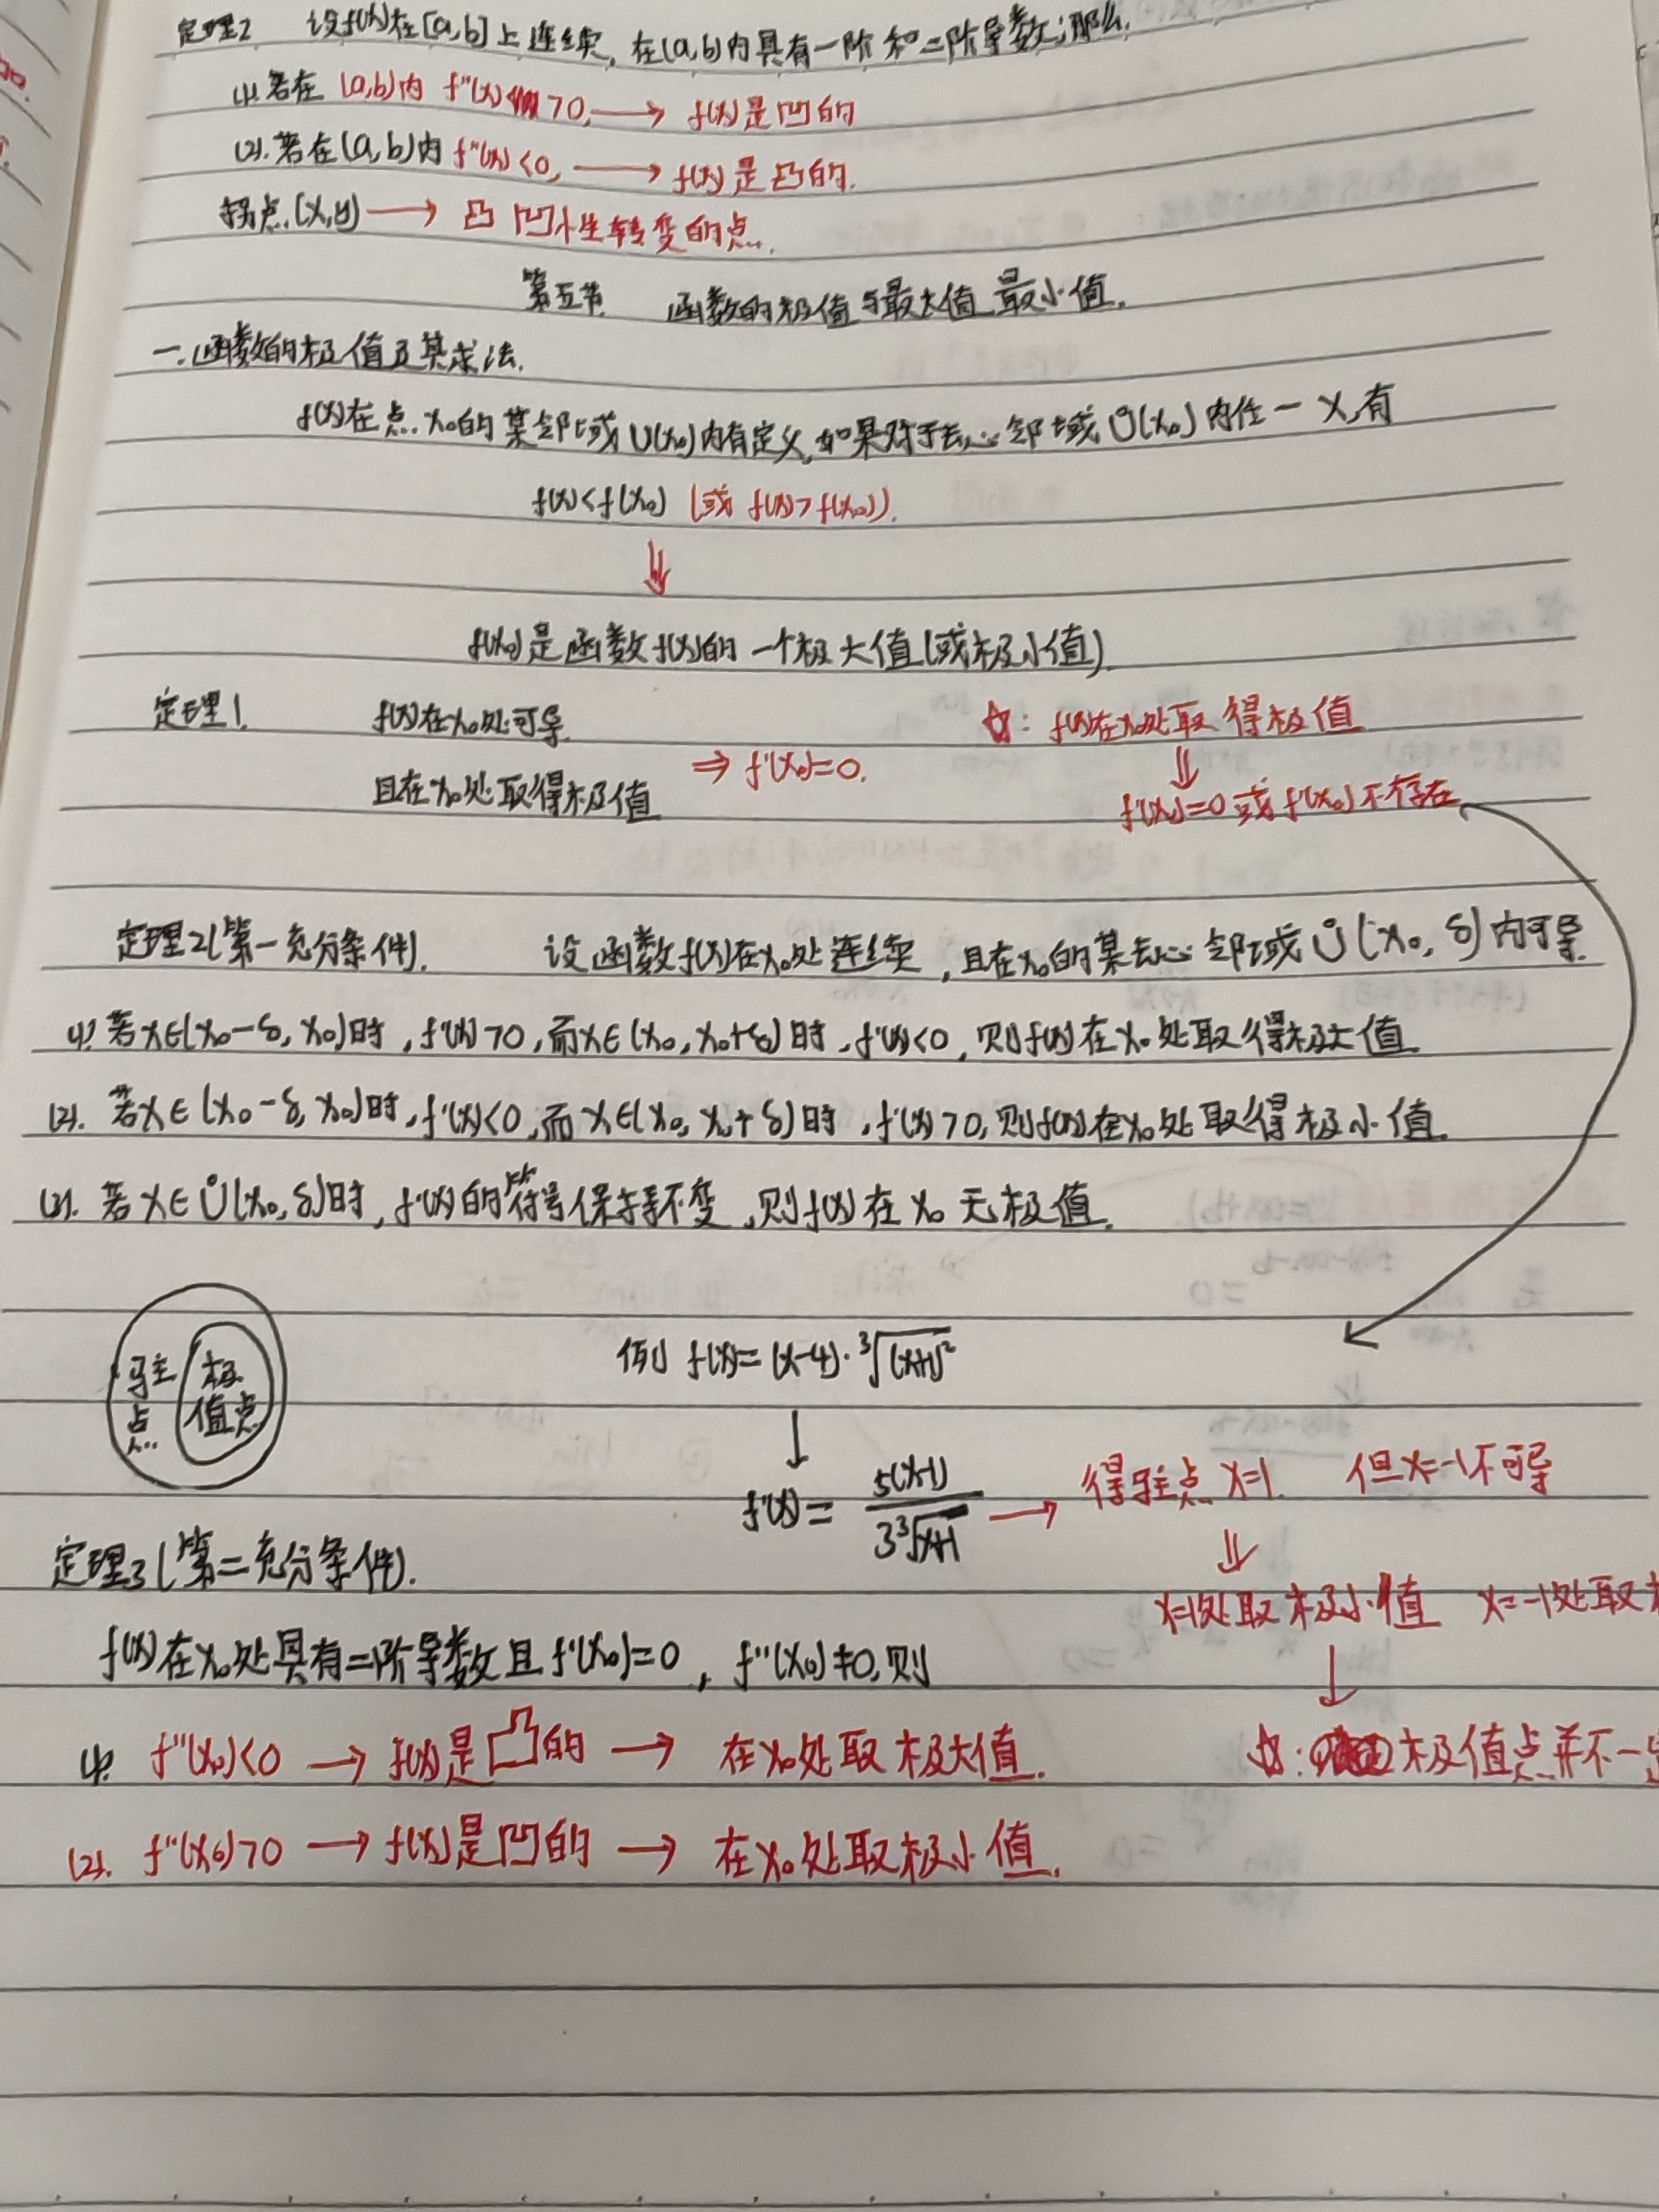 定理2 设f(x)在[a,b]上连续,在(a,b)内具有一阶和二阶导数,那么.
(1).若在(a,b)内 f''(x)>0,→ f(x)是凹的
(2).若在(a,b)内 f''(x)<0,→ f(x)是凸的.
拐点.(x,y)→ 凸凹性转变的点.
第五节. 函数的极值与最大值 最小值.
一.函数的极值及其求法.
f(x)在点x₀的某邻域U(x₀)内有定义,如果对于去心邻域Ů(x₀)内任一x,有
f(x)<f(x₀) (或 f(x)>f(x₀)).
⇓
f(x₀)是函数f(x)的一个极大值(或极小值)
定理1. f(x)在x₀处可导 ☆: f(x)在x₀处取得极值
且在x₀处取得极值 ⇒ f'(x₀)=0. ⇓
f'(x₀)=0或f'(x₀)不存在
定理2(第一充分条件). 设函数f(x)在x₀处连续,且在x₀的某去心邻域Ů(x₀,δ)内可导.
(1).若x∈(x₀-δ,x₀)时,f'(x)>0,而x∈(x₀,x₀+δ)时,f'(x)<0,则f(x)在x₀处取得极大值
(2).若x∈(x₀-δ,x₀)时,f'(x)<0,而x∈(x₀,x₀+δ)时,f'(x)>0,则f(x)在x₀处取得极小值.
(3).若x∈Ů(x₀,δ)时,f'(x)的符号保持不变,则f(x)在x₀无极值.
驻点 极值点
例 f(x)=(x-4)·³√(x+1)²
↓
f'(x)=5(x-1)/3³√x+1 → 得驻点 x=1. 但x=-1不可导
⇓
定理3(第二充分条件).
x=1处取极小值 x=-1处取
f(x)在x₀处具有二阶导数且f'(x₀)=0,f''(x₀)≠0,则
↓
(1). f''(x₀)<0 → f(x)是凸的 → 在x₀处取极大值. ☆: 极值点并不一
(2). f''(x₀)>0 → f(x)是凹的 → 在x₀处取极小值.